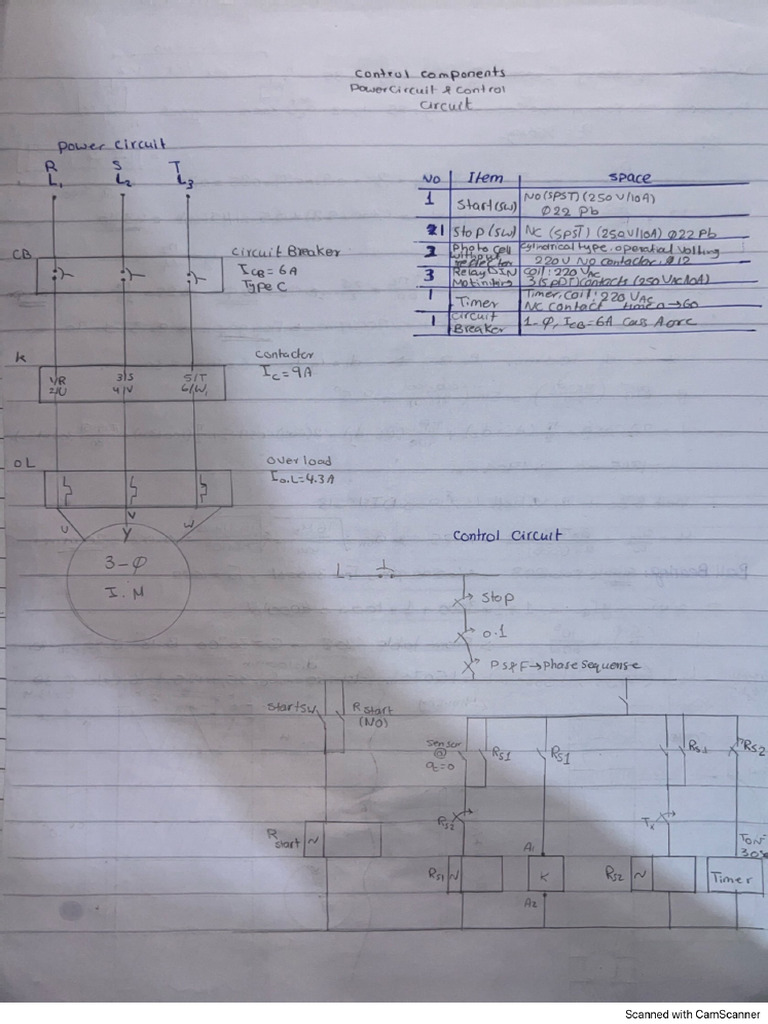 Control Components
Power Circuit & Control
Circuit
Power Circuit
R S T
L1 L2 L3
CB
Circuit Breaker
ICB = 6A
Type C
K
1/R 3/S 5/T
2/U 4/V 6/W
Contactor
IC = 9A
OL
Over load
IO.L = 4.3A
U V W
Y
3-φ
I.M
No Item space
1 Start (sw) NO (SPST) (250V/10A)
Ø22 Pb
1 Stop (sw) NC (SPST) (250V/10A) Ø22 Pb
2 Photo Cell Cylindrical type. operatial Volting
without reflector 220V No Contactor. Ø12
3 Relay DIN Coil: 220 VAC
3(SPDT) Contacts (250VAC/10A)
1 Timer Timer. Coil: 220 VAC
NC Contact time 0→60
1 Circuit Breaker 1-φ, ICB = 6A
Control Circuit
L
Stop
0.1
PS&F→Phase Sequense
Start sw
R start
(NO)
Sensor
@
RS1
RS1
RS2
RS2
Tx
R start
~
A1
TON
RS1 ~
K
RS2 ~
Timer
A2
Scanned with CamScanner